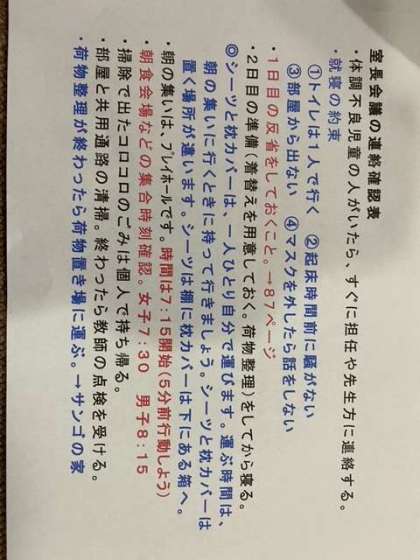 室長会議の連絡確認表
・体調不良児童の人がいたら、すぐに担任や先生方に連絡する。
・就寝の約束
①トイレは1人で行く ②起床時間前に騒がない
③部屋から出ない ④マスクを外したら話をしない
・1日目の反省をしておくこと。→87ページ
・2日目の準備(着替えを用意しておく。荷物整理)をしてから寝る。
◎シーツと枕カバーは、一人ひとり自分で運びます。運ぶ時間は、
朝の集いに行くときに持って行きましょう。シーツと枕カバーは
置く場所が違います。シーツは棚に枕カバーは下にある箱へ。
・朝の集いは、プレイホールです。時間は7:15開始(5分前行動しよう)
・朝食会場などの集合時刻確認。女子7:30 男子8:15
・掃除で出たコロコロのごみは個人で持ち帰る。
・部屋と共用通路の清掃。終わったら教師の点検を受ける。
・荷物整理が終わったら荷物置き場に運ぶ。→サンゴの家